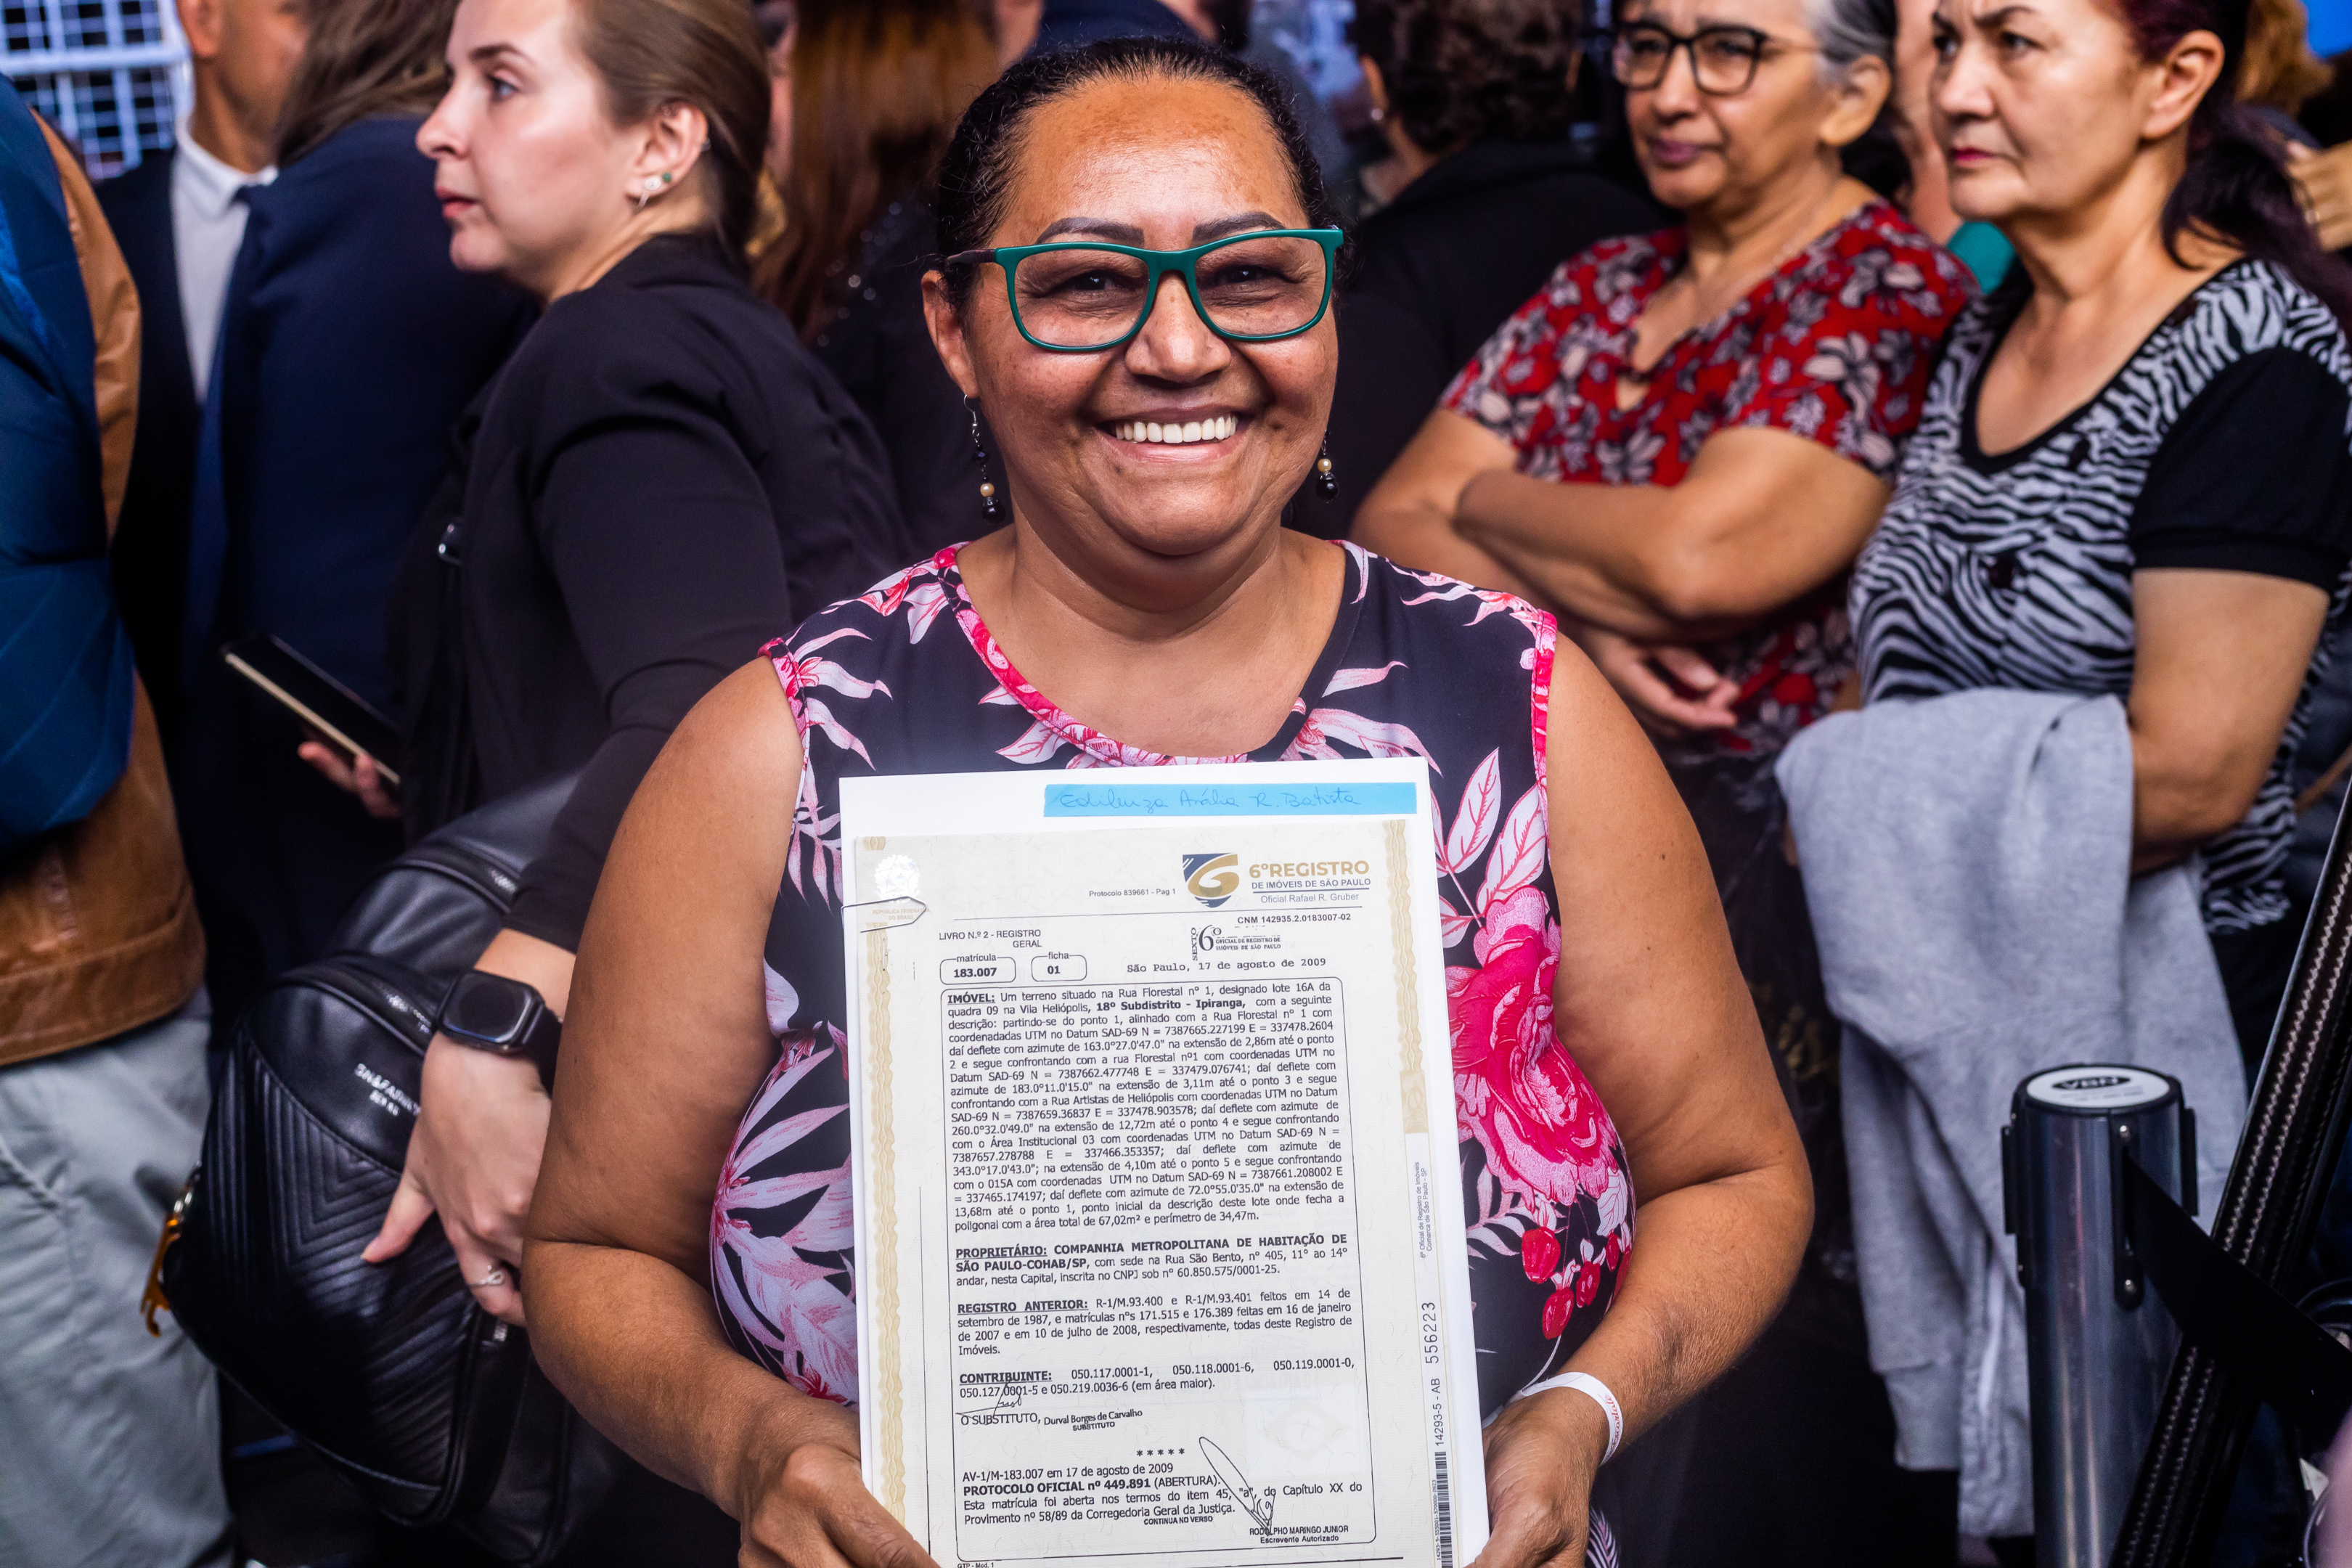 Edileuza Amália R. Batista
6º REGISTRO
DE IMÓVEIS DE SÃO PAULO
Oficial Rafael R. Gruber
Protocolo 839661 - Pag 1
CNM 142935.2.0183007-02
LIVRO N.º 2 - REGISTRO
GERAL
SEXTO 6º OFICIAL DE REGISTRO DE
IMÓVEIS DE SÃO PAULO
matrícula
183.007
ficha
01
São Paulo, 17 de agosto de 2009
IMÓVEL: Um terreno situado na Rua Florestal nº 1, designado lote 16A da
quadra 09 na Vila Heliópolis, 18º Subdistrito - Ipiranga, com a seguinte
descrição: partindo-se do ponto 1, alinhado com a Rua Florestal nº 1 com
coordenadadas UTM no Datum SAD-69 N = 7387665.227199 E = 337478.2604
daí deflete com azimute de 163.0º27.0'47.0" na extensão de 2,86m até o ponto
2 e segue confrontando com a rua Florestal nº1 com coordenadas UTM no
Datum SAD-69 N = 7387662.477748 E = 337479.076741; daí deflete com
azimute de 183.0º11.0'15.0" na extensão de 3,11m até o ponto 3 e segue
confrontando com a Rua Artistas de Heliópolis com coordenadas UTM no Datum
SAD-69 N = 7387659.36837 E = 337478.903578; daí deflete com azimute de
260.0º32.0'49.0" na extensão de 12,72m até o ponto 4 e segue confrontando
com o Área Institucional 03 com coordenadas UTM no Datum SAD-69 N =
7387657.278788 E = 337466.353357; daí deflete com azimute de
343.0º17.0'43.0"; na extensão de 4,10m até o ponto 5 e segue confrontando
com o 015A com coordenadas UTM no Datum SAD-69 N = 7387661.208002 E
= 337465.174197; daí deflete com azimute de 72.0º55.0'35.0" na extensão de
13,68m até o ponto 1, ponto inicial da descrição deste lote onde fecha a
poligonal com a área total de 67,02m² e perímetro de 34,47m.
PROPRIETÁRIO: COMPANHIA METROPOLITANA DE HABITAÇÃO DE
SÃO PAULO-COHAB/SP, com sede na Rua São Bento, nº 405, 11º ao 14º
andar, nesta Capital, inscrita no CNPJ sob nº 60.850.575/0001-25.
REGISTRO ANTERIOR: R-1/M.93.400 e R-1/M.93.401 feitos em 14 de
setembro de 1987, e matrículas nºs 171.515 e 176.389 feitas em 16 de janeiro
de 2007 e em 10 de julho de 2008, respectivamente, todas deste Registro de
Imóveis.
CONTRIBUINTE: 050.117.0001-1, 050.118.0001-6, 050.119.0001-0,
050.127.0001-5 e 050.219.0036-6 (em área maior).
O SUBSTITUTO, Durval Borges de Carvalho
SUBSTITUTO
* * * * *
AV-1/M-183.007 em 17 de agosto de 2009
PROTOCOLO OFICIAL nº 449.891 (ABERTURA).
Esta matrícula foi aberta nos termos do item 45, "a", do Capítulo XX do
Provimento nº 58/89 da Corregedoria Geral da Justiça.
CONTINUA NO VERSO
RODOLPHO MARINGO JUNIOR
Escrevente Autorizado
GTP - Mod. 1
6º Oficial de Registro de Imóveis
Comarca de São Paulo - SP
14293-5 - AB 556223